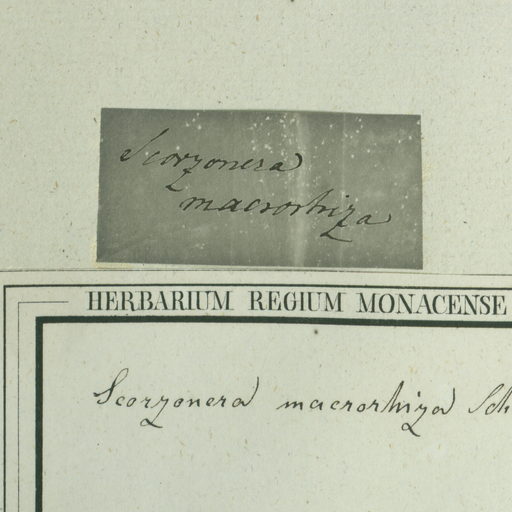 Scorzonera
macrorhiza
HERBARIUM REGIUM MONACENSE
Scorzonera macrorhiza Sch